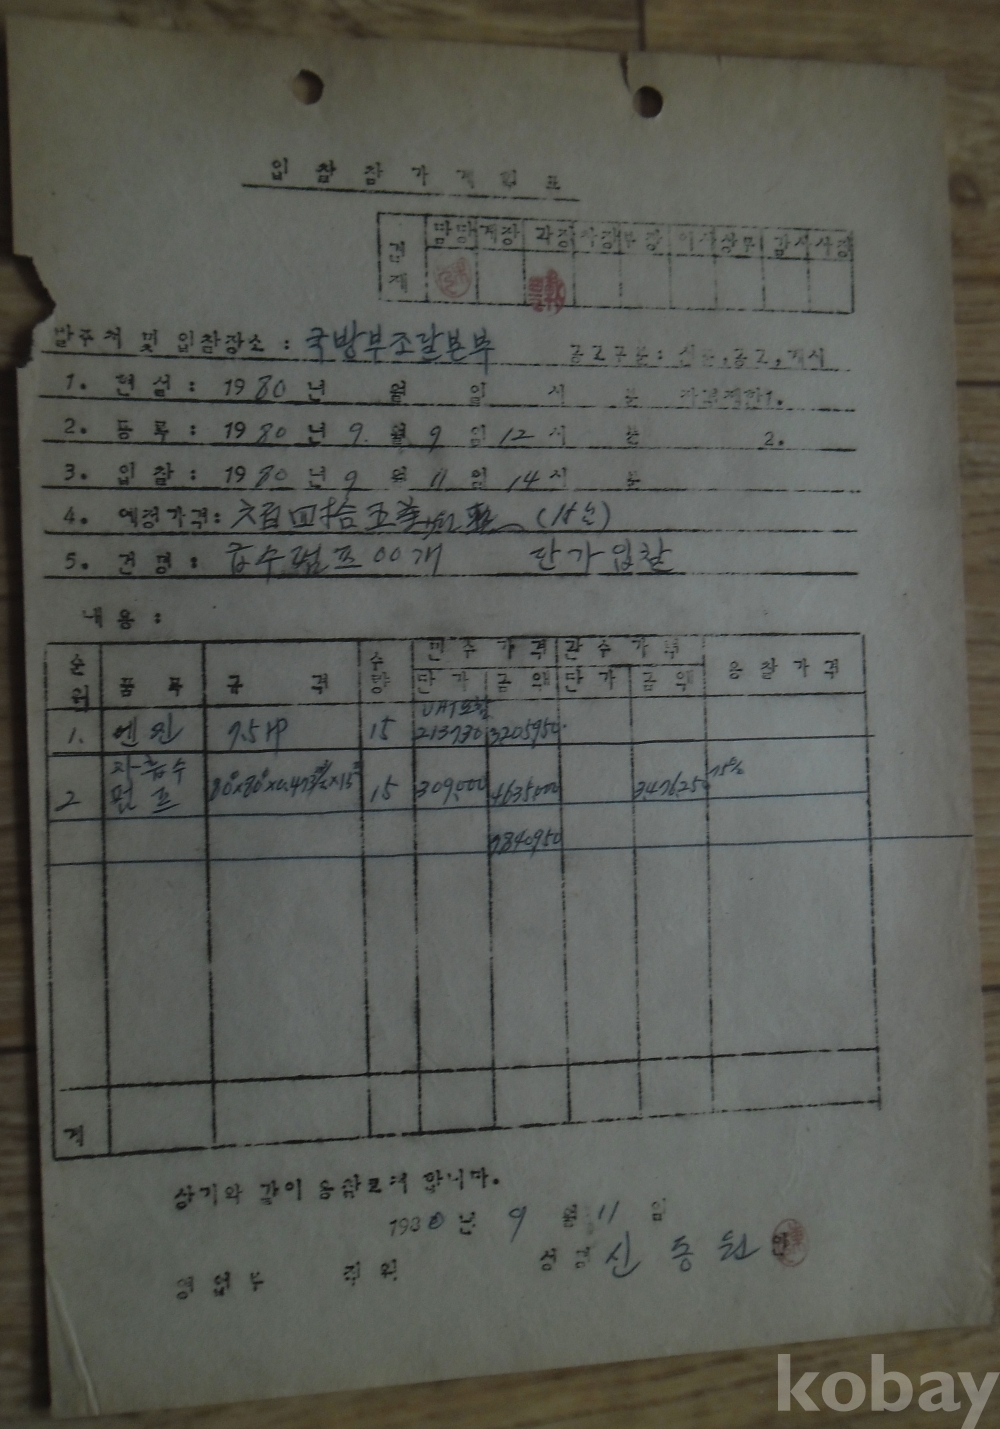 입찰참가계획표
결재 담당 계장 과장 차장 부장 이사 상무 감사 사장
발주처 및 입찰장소 : 국방부조달본부 공고구분 : 신문, 공고, 게시
1. 현설 : 1980년 월 일 시 분 자격제한1.
2. 등록 : 1980년 9월 9일 12시 분 2.
3. 입찰 : 1980년 9월 11일 14시 분
4. 예정가격 :
5. 건명 : 급수펌프 00개 단가입찰
내용 :
순위 품목 규격 수량 민수가격 관수가격 응찰가격
단가 금액 단가 금액
1. 엔진 7.5HP 15 213730 3205950
2 자-흡수펌프 15 309,000 4635000 3476250 75%
7840950
계
상기와 같이 응찰코저 합니다.
1980년 9월 11일
영업부 직원 성명 신동원 인
kobay